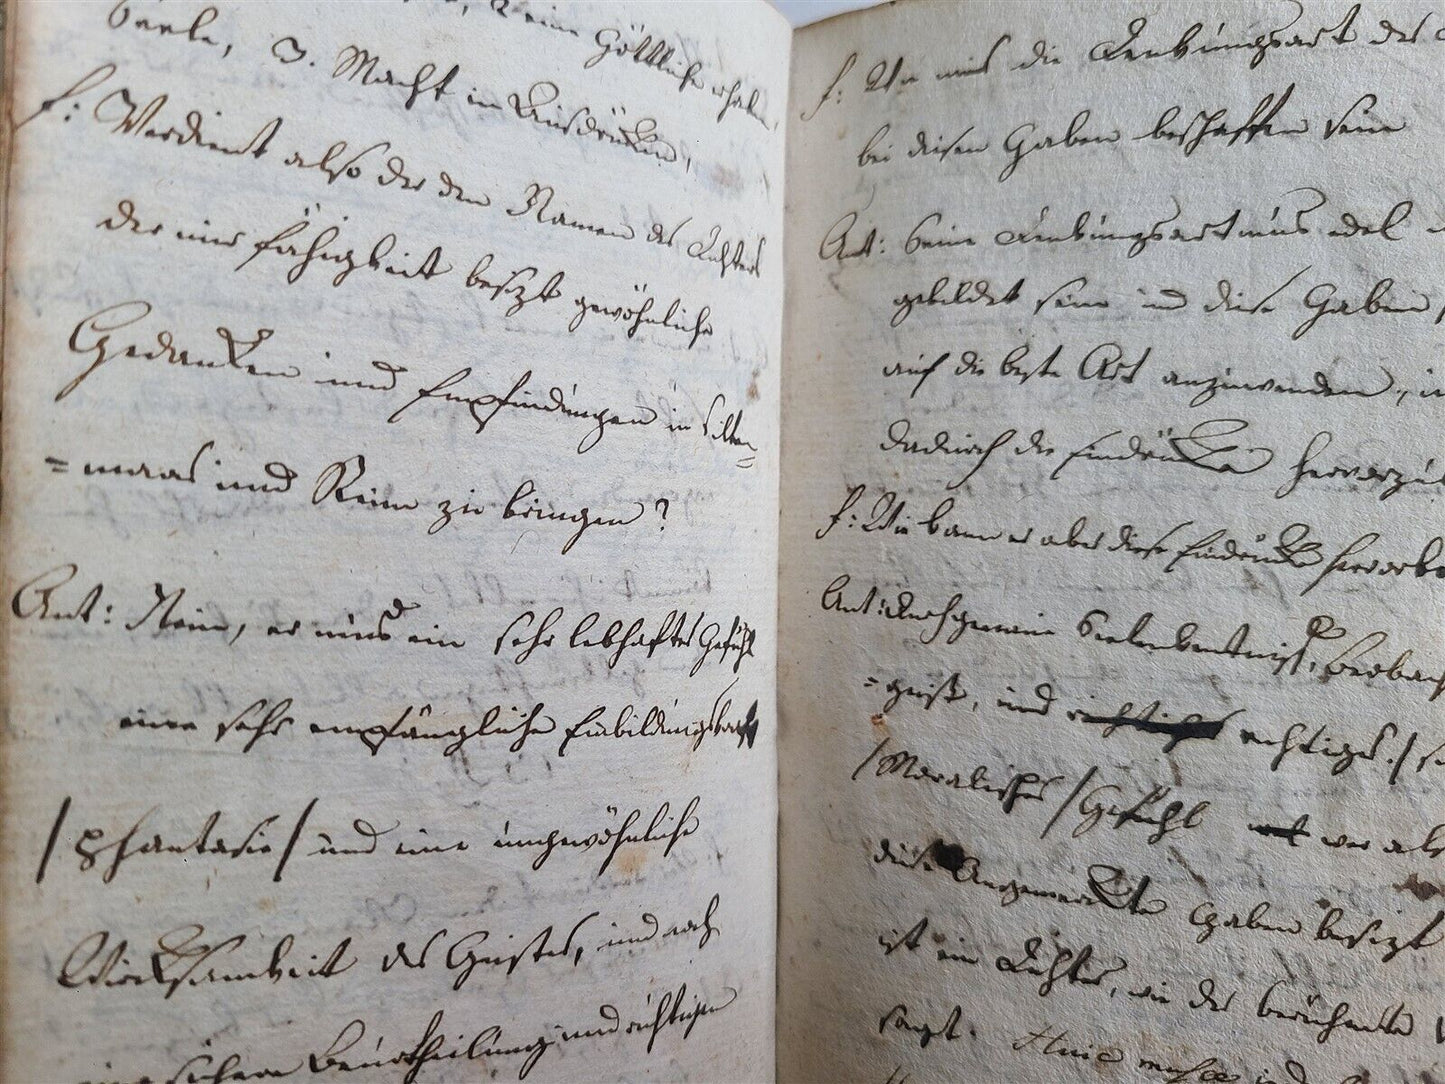 Seele, 3. Macht in Ausdrücken,
f: Verdient also der den Namen des Dichters
der nur Fähigkeit besizt gewöhnliche
Gedanken und Empfindungen in Silben
=maas und Reime zu bringen?
Ant: Nein, er muß ein sehr lebhaftes Gefühl
eine sehr empfängliche Einbildungskraft
/phantasie/ und eine ungewöhnliche
Wirksamkeit des Geistes, und noch
sichere Beurtheilung und richtigen
f: Wie mus die Denkungsart des
bei diesen Gaben beschaffen seÿn
Ant: Seine Denkungsart mus edel
gebildet seÿn und diese Gaben
auf die beste Art anzuwenden,
dadurch die Eindrücke hervorzu
f: Wie kann er aber diese Eindrücke hervorb
Ant: durch genaue Seelenkentniß, Beobach
=geist, und richtiges /
/Moralisches/ Gefühl wer al
diese Angemerkte Gaben besizt
ist ein Dichter, wie der berühmte
sagt. Huic